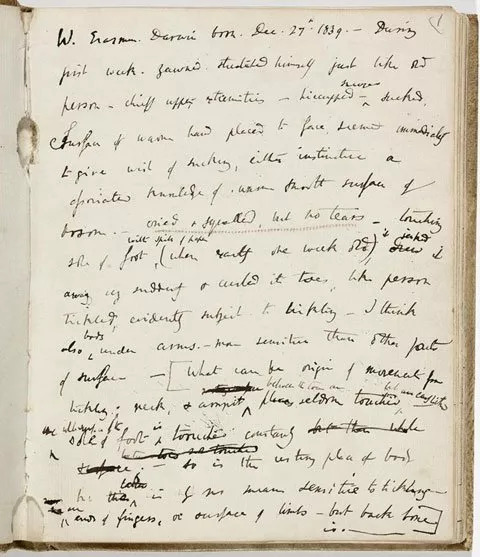 1
W. Erasmus. Darwin born. Dec. 27th 1839. — During
first week. yawned, stretched himself just like old
person — chiefly upper extremities — hiccupped — sneezes
sucked,
Surface of warm hand placed to face, seemed immediately
to give wish of sucking, either instinctive or
associated knowledge of warm smooth surface of
bosom. — cried & squalled, but no tears — touching
sole of foot with spill of paper, (when exactly one week old), it jerked it
away very suddenly & curled its toes, like person
tickled, evidently subject to tickling — I think
also body under arms. — more sensitive than other parts
of surface — [What can be origin of movement from
tickling; neck, & armpit between the toes are places seldom touched
sole of foot is constantly
— so is the resting place of body
is by no means sensitive to tickling —
ends of fingers, or surface of limbs — but back bone
is. —]